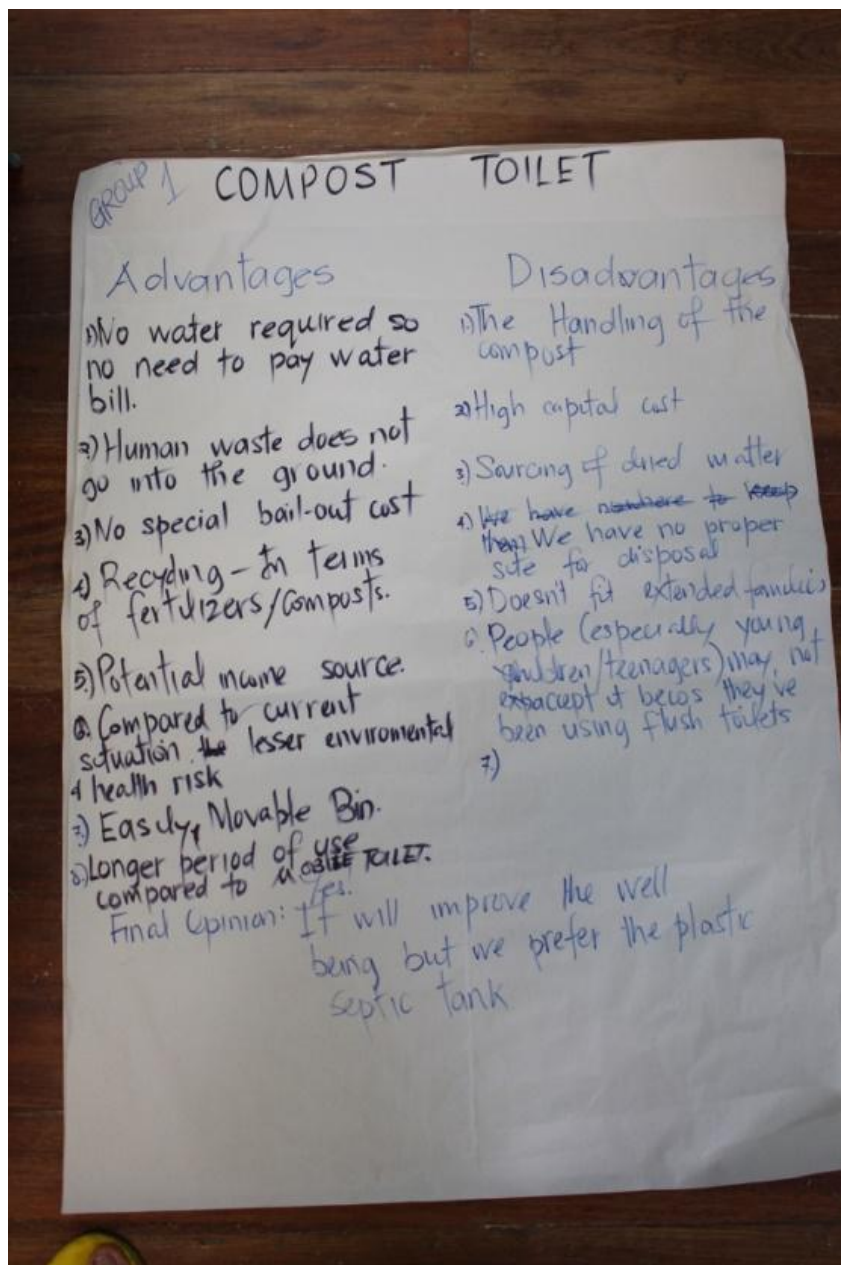 GROUP 1 COMPOST TOILET
Advantages
1) No water required so
no need to pay water
bill.
2) Human waste does not
go into the ground.
3) No special bail-out cost
4) Recycling - In terms
of fertilizers/composts.
5) Potential income source.
6. Compared to current
situation, lesser enviromental
& health risk
7.) Easily, Movable Bin.
8) Longer period of use
compared to MOBILE TOILET.
Disadvantages
1) The Handling of the
compost
2) High capital cost
3) Sourcing of dried matter
4) We have nowhere to keep
them We have no proper
site for disposal
5) Doesn't fit extended families
6. People (especially young
children/teenagers) may not
accept it becos they've
been using flush toilets
7.)
Yes.
Final Opinion: It will improve the well
being but we prefer the plastic
septic tank